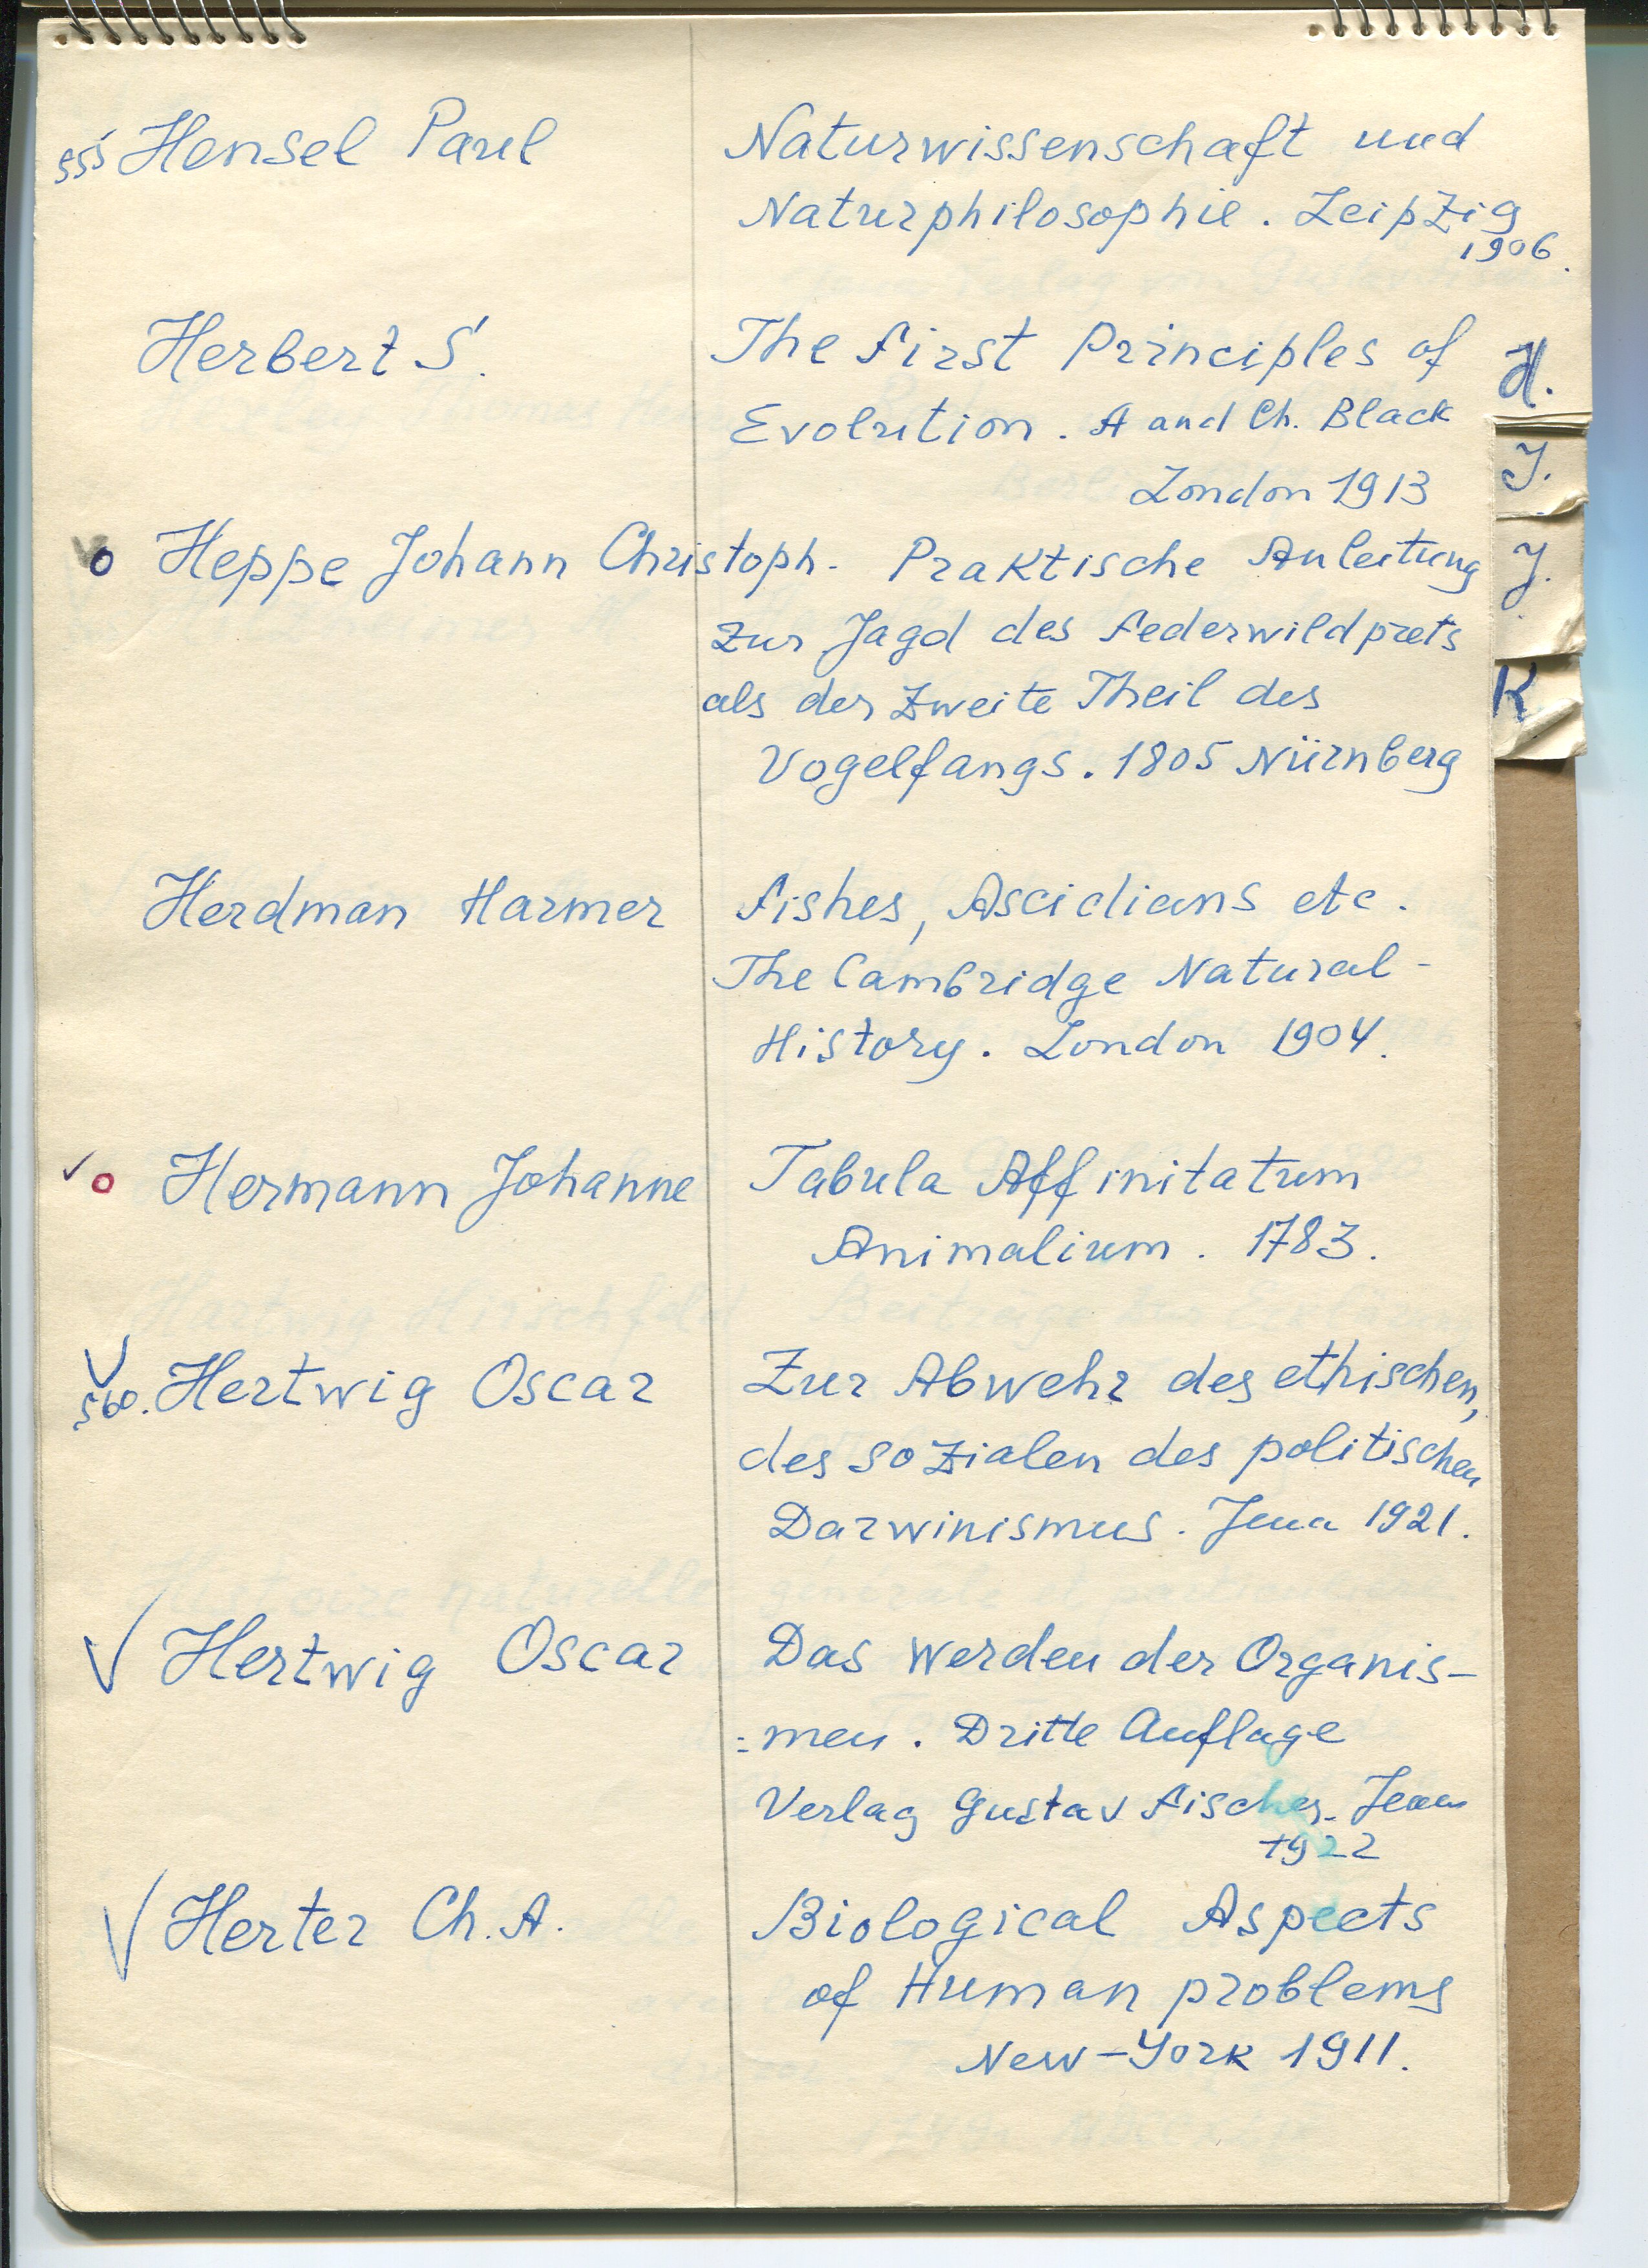 Hensel Paul Naturwissenschaft und
Naturphilosophie. Leipzig
1906.
Herbert S. The First Principles of
Evolution. A and Ch. Black
London 1913
o Heppe Johann Christoph. Praktische Anleitung
zur Jagd des Federwildprets
als der zweite Theil des
Vogelfangs. 1805 Nürnberg
Herdman Harmer Fishes, Ascidians etc.
The Cambridge Natural-
History. London 1904.
✓ o Hermann Johanne Tabula Affinitatum
Animalium. 1783.
✓
560. Hertwig Oscar Zur Abwehr des ethischen,
des sozialen des politischen
Darwinismus. Jena 1921.
✓ Hertwig Oscar Das Werden der Organis-
=men. Dritte Auflage
Verlag Gustav Fischer. Jena
1922
✓ Herter Ch. A. Biological Aspects
of Human problems
New-York 1911.
H.
I.
J.
K